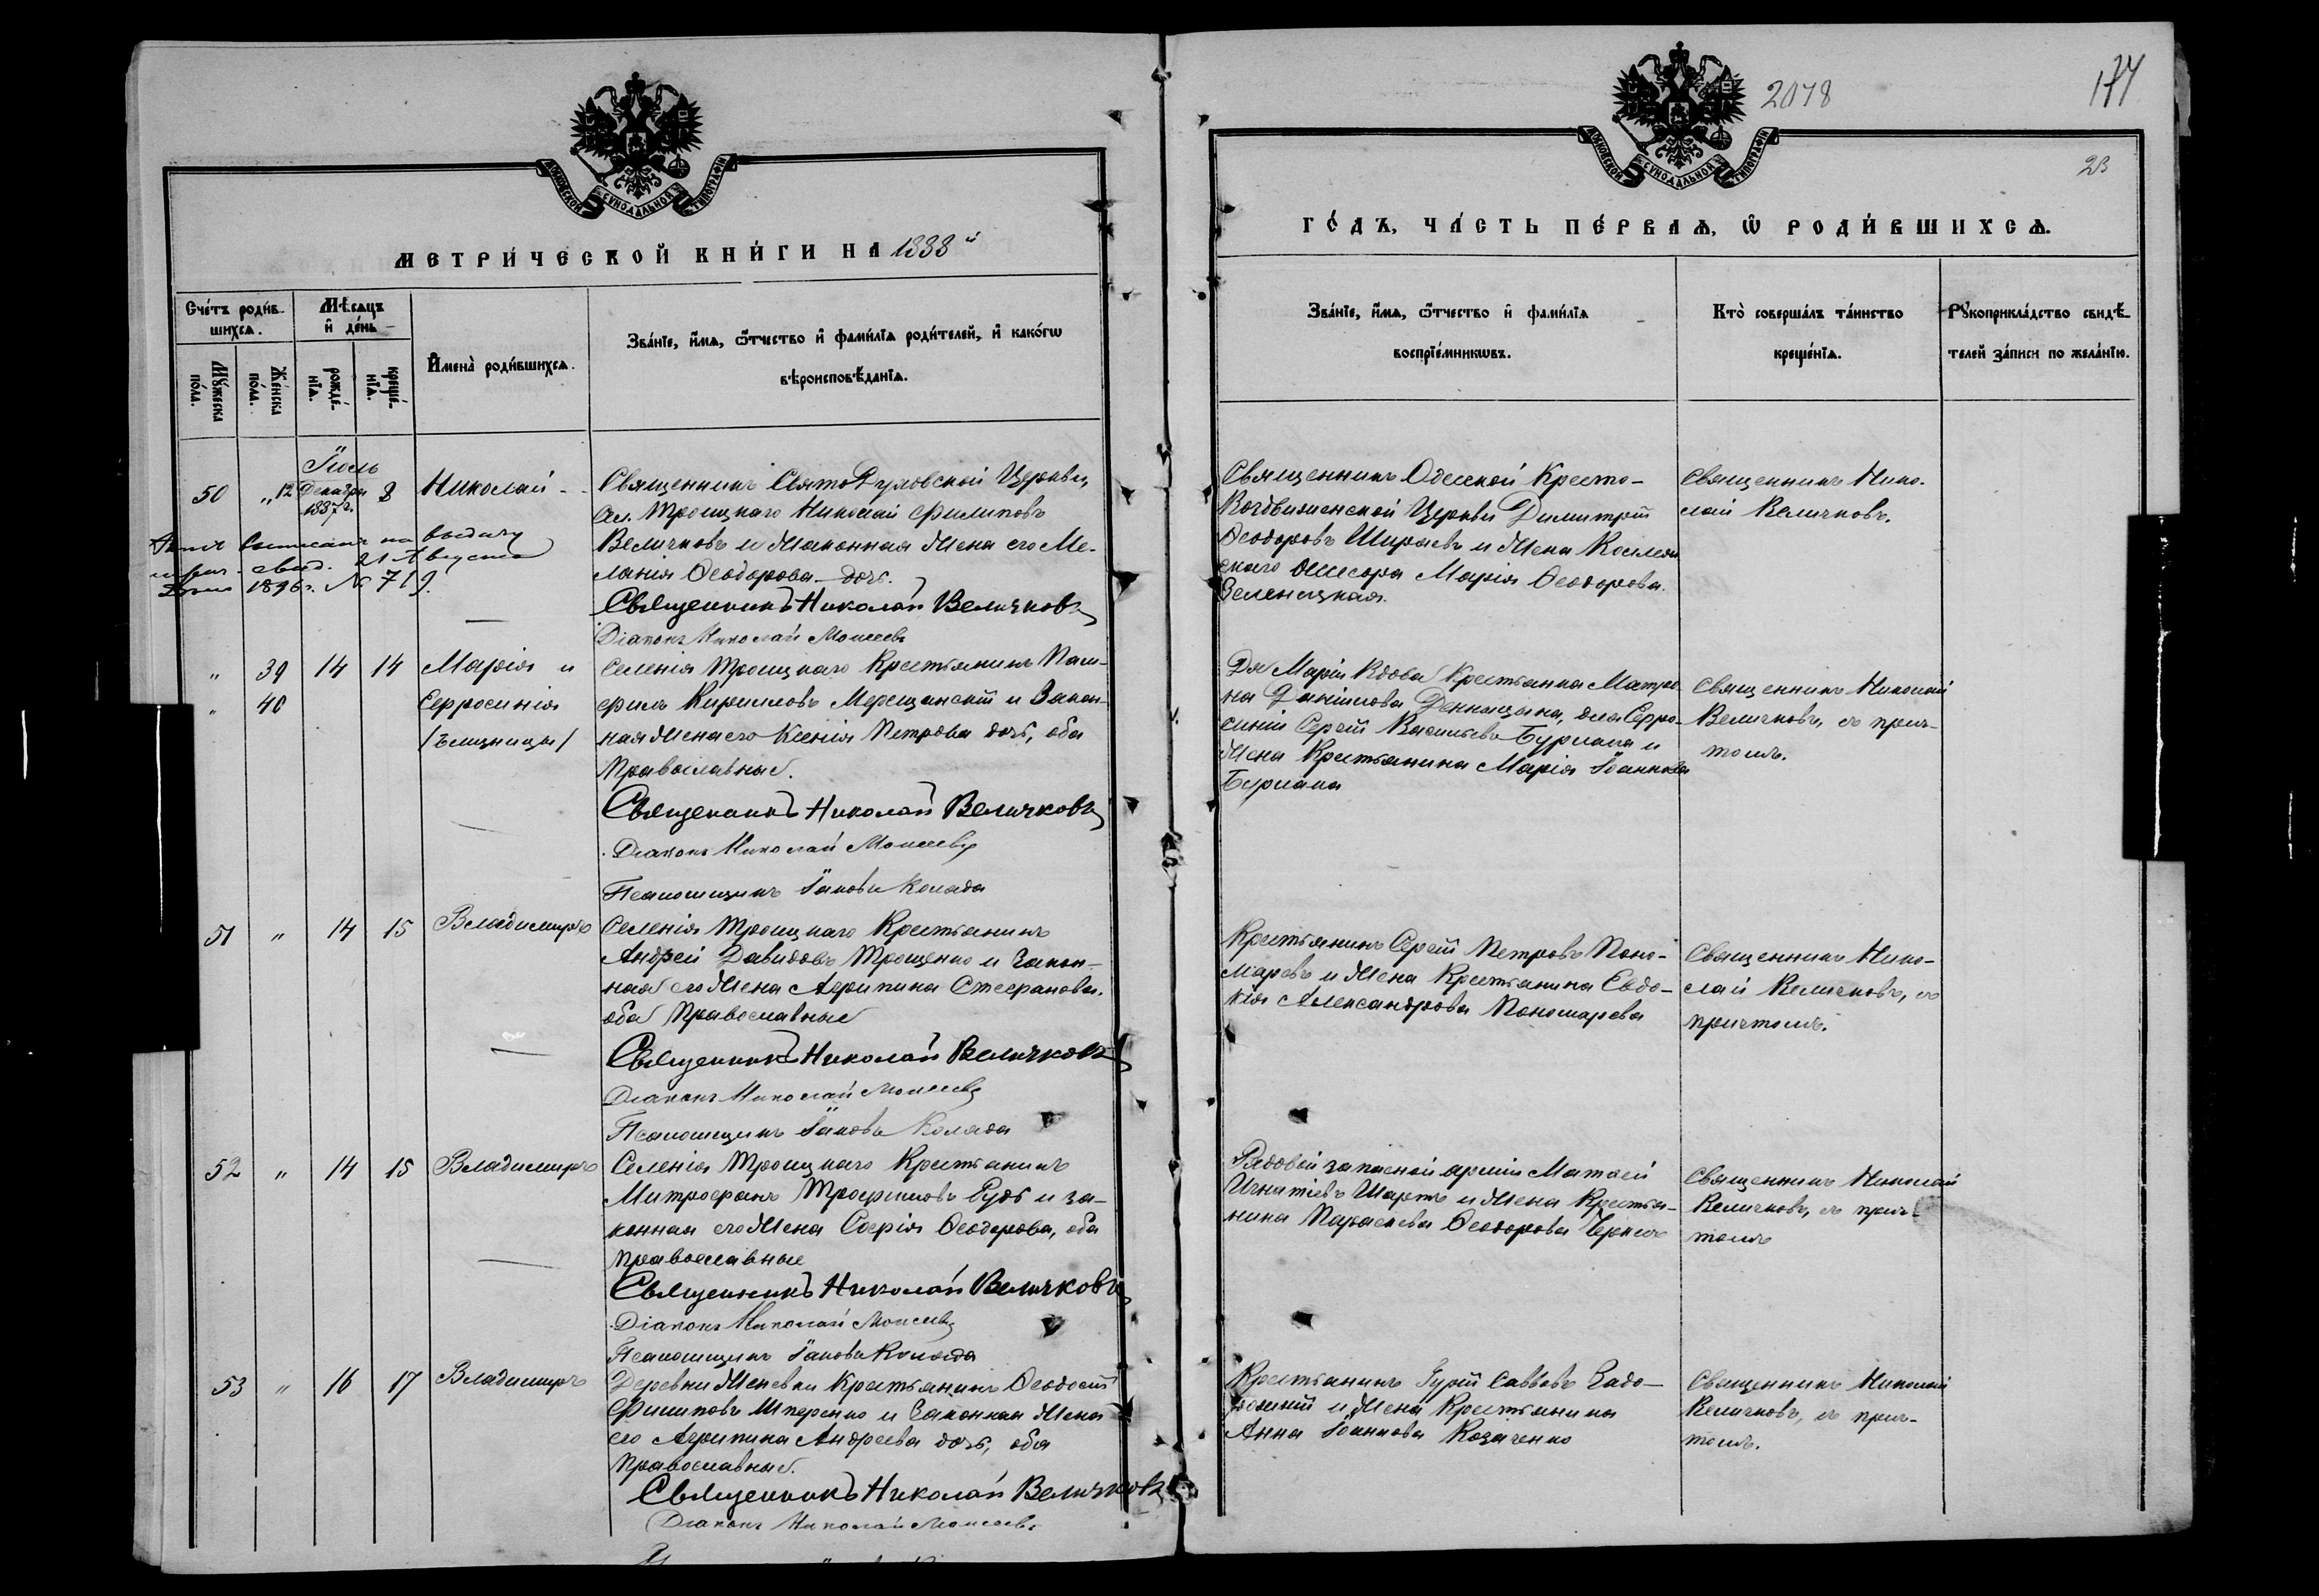 2078
177
23
МОСКОВСКОЙ СУНОДАЛЬНОЙ ТИПОГРАФІИ
МОСКОВСКОЙ СУНОДАЛЬНОЙ ТИПОГРАФІИ
МЕТРИ́ЧЕСКОЙ КНИ́ГИ НА 1888й
ГО́ДЪ, ЧА́СТЬ ПЕ́РВАѦ, Ѡ҆ РОДИ́ВШИХСѦ.
Сче́тъ роди́в-
шихсѧ.
Мꙋ́жеска по́ла.
Же́нска по́ла.
Мѣ́сѧцъ
и҆ де́нь
рожде́-
нїѧ.
креще́-
нїѧ.
И҆мена̀ роди́вшихсѧ.
Зва́нїе, и҆́мѧ, ѻ҆́тчество и҆ фами́лїѧ роди́телей, и҆ како́гѡ
вѣроисповѣ́данїѧ.
Зва́нїе, и҆́мѧ, ѻ҆́тчество и҆ фами́лїѧ
воспрїе́мникѡвъ.
Кто̀ соверша́лъ та́инство
креще́нїѧ.
Рꙋкоприкла́дство свидѣ́-
телей за́писи по жела́нїю.
Іюль
50 „ 12 Декабря 1887 г. 8 Николай
Священникъ Свято Духовской Церкви
сел. Троицкаго Николай Филиповъ
Величковъ и Законная Жена его Ме-
лания Ѳеодорова доч.
Священникъ Николай Величковъ
Діаконъ Николай Моисеевъ
выписанъ на выдачу
свид. 21 Августа
1896 г. № 719.
Священникъ Одесской Кресто-
Воздвиженской Церкви Димитрій
Ѳеодоровъ Шираевъ и Жена Коллеж
скаго Ассесора Марія Ѳеодорова
Зеленецкая.
Священникъ Нико-
лай Величковъ.
„ 39 14 14 Марія и
„ 40 Ефросинія
/близнецы/
Селенія Троицкаго Крестьянинъ Пам-
филъ Кириловъ Мерещанскій и Закон-
ная Жена его Ксенія Петрова дочь, оба
Православные.
Священникъ Николай Величковъ
Діаконъ Николай Моисеевъ
Псаломщикъ Іаковъ Коляда
Для Маріи Вдова Крестьянка Матро
на Даніилова Деннощина, для Ефро-
синіи Сергій Васильевъ Бурлака и
Жена Крестьянина Марія Іоаннова
Бурлака
Священникъ Николай
Величковъ, съ прич-
томъ.
51 „ 14 15 Владимиръ
Селенія Троицкаго Крестьянинъ
Андрей Давидовъ Трощенко и Закон-
ная его Жена Агрипина Стефанова.
оба Православные
Священникъ Николай Величковъ
Діаконъ Николай Моисеевъ
Псаломщикъ Іаковъ Коляда
Крестьянинъ Сергій Петровъ Поно-
маревъ и Жена Крестьянина Евдо-
кія Александрова Пономарева
Священникъ Нико-
лай Величковъ, съ
причтомъ.
52 „ 14 15 Владимиръ
Селенія Троицкаго Крестьянинъ
Митрофанъ Трофимовъ Рудь и за-
конная его Жена Софія Ѳеодорова, оба
православные
Священникъ Николай Величковъ
Діаконъ Николай Моисеевъ
Псаломщикъ Іаковъ Коляда
Рядовой запасной арміи Матѳей
Игнатіевъ Шартъ и Жена Крестья-
нина Параскева Ѳеодорова
Священникъ Николай
Величковъ, съ прич-
томъ
53 „ 16 17 Владимиръ
Деревни Женевки Крестьянинъ Ѳеодосій
Филиповъ Шперенко и Законная Жена
его Агрипина Андреева дочь, оба
Православные.
Священникъ Николай Величковъ
Діаконъ Николай Моисеевъ
Крестьянинъ Гурій Саввовъ Задо-
рожній и Жена Крестьянина
Анна Іоаннова Козаченко
Священникъ Николай
Величковъ, съ прич-
томъ.